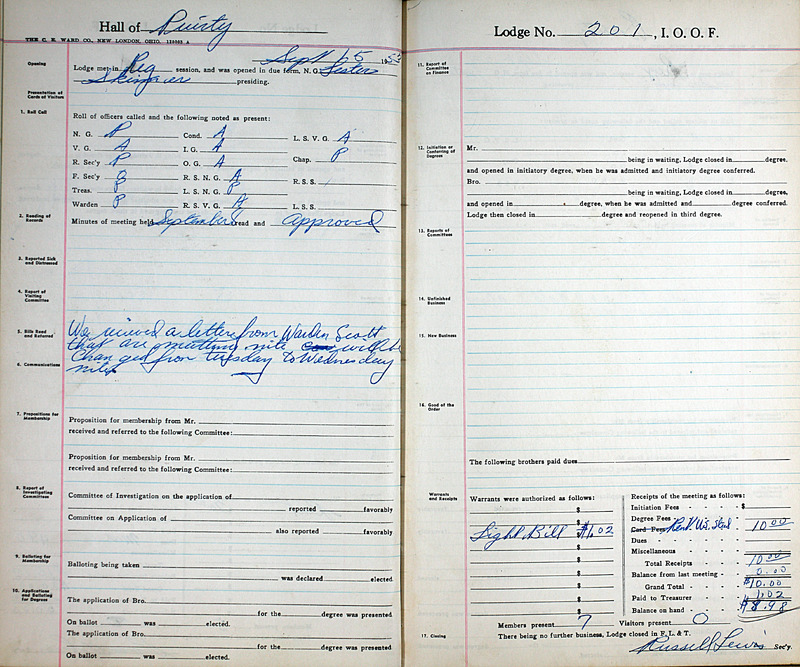 Hall of Purity
THE C. E. WARD CO., NEW LONDON, OHIO. 120903 A
Sept 15 1953
Opening
Lodge met in Reg session, and was opened in due form, N. G. Sister
Skinner presiding.
Presentation of
Cards of Visitors
1. Roll Call
Roll of officers called and the following noted as present:
N. G. P Cond. A L. S. V. G. A
V. G. A I. G. A Chap. P
R. Sec'y P O. G. A
F. Sec'y a R. S. N. G. A R. S. S.
Treas. P L. S. N. G. P
Warden P R. S. V. G. A L. S. S.
2. Reading of
Records
Minutes of meeting held September 8 read and approved
3. Reported Sick
and Distressed
4. Report of
Visiting
Committee
5. Bills Read
and Referred
We recieved a letter from Warden Scott
that are meetting nite will be
Changed from tuesday to Wednesday
nite
6. Communications
7. Propositions for
Membership
Proposition for membership from Mr.
received and referred to the following Committee:
Proposition for membership from Mr.
received and referred to the following Committee:
8. Report of
Investigating
Committee
Committee of Investigation on the application of
reported favorably
Committee on Application of
also reported favorably
9. Balloting for
Membership
Balloting being taken
was declared elected.
10. Applications
and Balloting
for Degrees
The application of Bro.
for the degree was presented.
On ballot was elected.
The application of Bro.
for the degree was presented.
On ballot was elected.
Lodge No. 201, I. O. O. F.
11. Report of
Committee
on Finance
12. Initiation or
Conferring of
Degrees
Mr.
being in waiting, Lodge closed in degree,
and opened in initiatory degree, when he was admitted and initiatory degree conferred.
Bro.
being in waiting, Lodge closed in degree,
and opened in degree, when he was admitted and degree conferred.
Lodge then closed in degree and reopened in third degree.
13. Reports of
Committees
14. Unfinished
Business
15. New Business
16. Good of the
Order
The following brothers paid dues
Warrants
and Receipts
Warrants were authorized as follows:
$
$
Light Bill $1.02
$
$
$
$
$
$
Receipts of the meeting as follows:
Initiation Fees $
Degree Fees
Card Fees Rent U.S. Steel 10 00
Dues
Miscellaneous
Total Receipts 10 00
Balance from last meeting 0.00
Grand Total $10.00
Paid to Treasurer 1.02
Balance on hand $8.98
Members present 7 Visitors present 0
17. Closing
There being no further business, Lodge closed in F., L. & T.
Russell Lewis Sec'y.